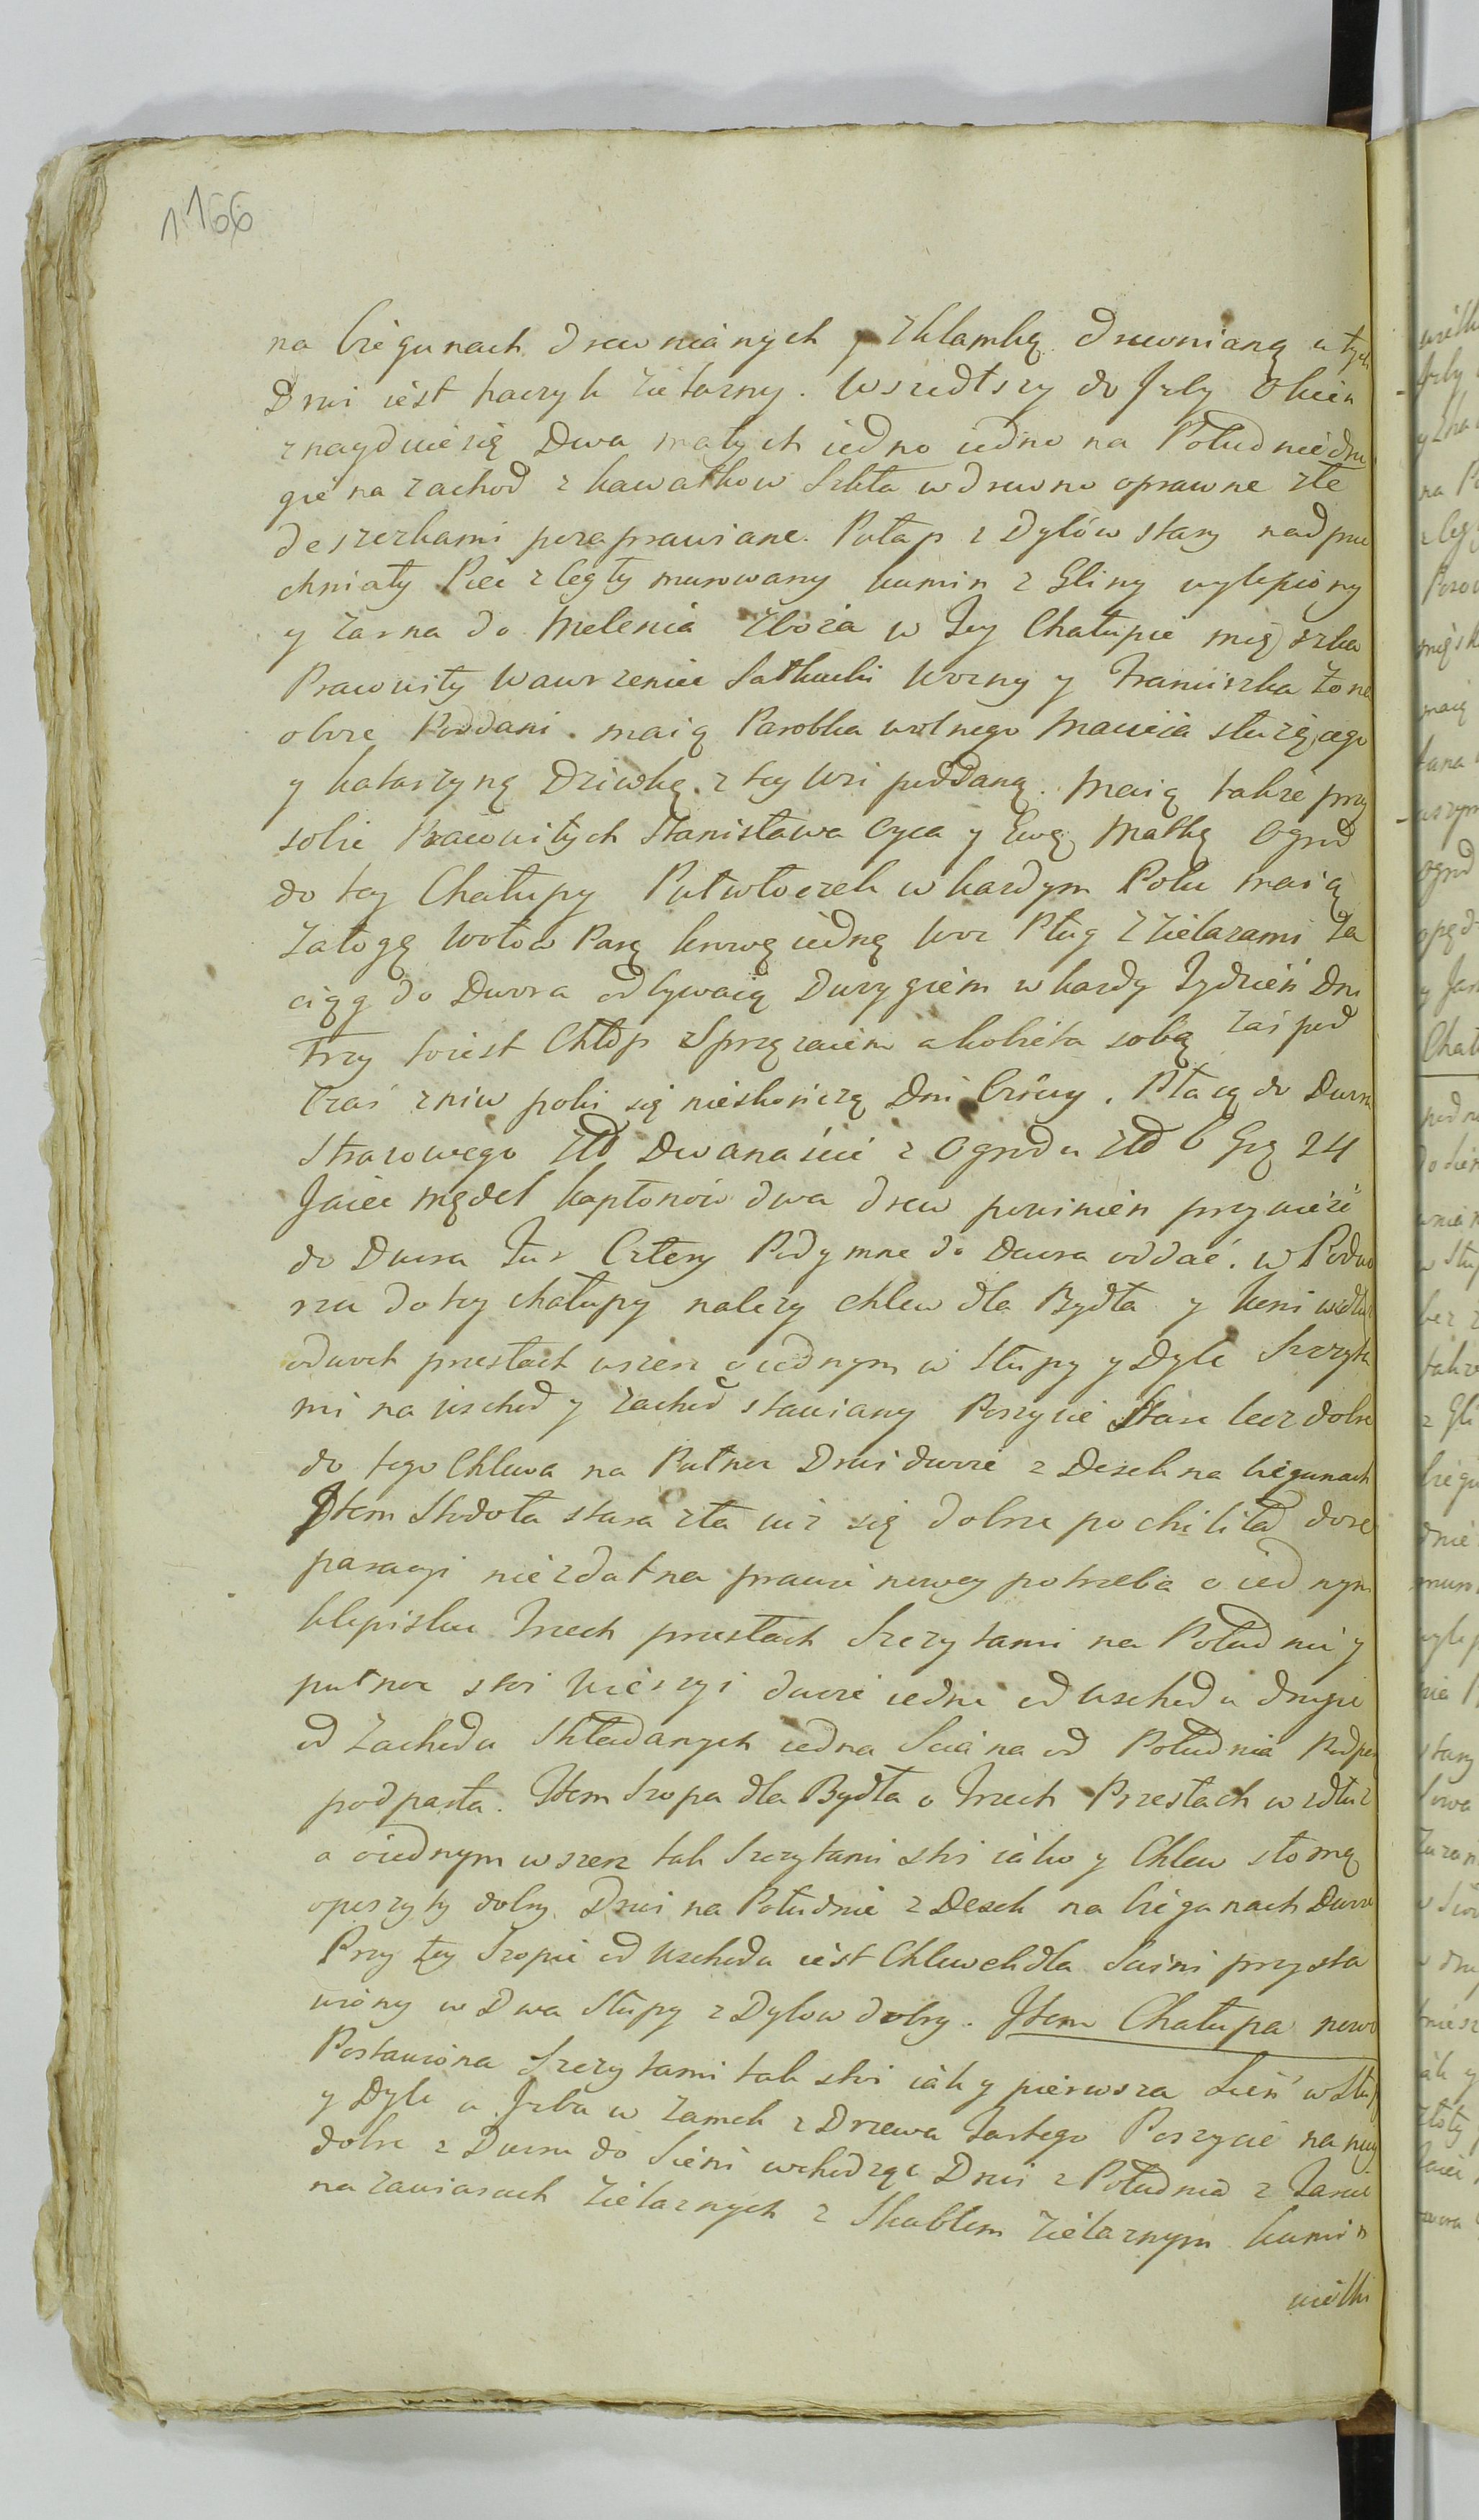 1166
na biegunach drewnianych y z klamką drewnianą u tych
Drwi iest haczyk żelazny. Wszedłszy do Jzby Okien
znayduie się Dwa małych iedno iedno na Południe dru
gie na zachod z kawałkow Szkła w drewno oprawne złe
deszczkami poza prawiane. Pułap z Dylów stary nadpru
chniały Piec z Cegły murowany kumin z Gliny wylepiony
y żarna do Melenia Zboża w Tey Chałupie mięszka
Prawowity Wawrzeniec Woźny y Franciszka Żona
oboie Poddani. maią Parobka wolnego Macieia służącego
y Katarzynę Dziwkę z tey Wsi poddaną. Maią także przy
sobie Pracowitych Stanisława Oyca y Ewę Matkę Ogrod
do tey Chałupy Pułwłoczek w kazdym Polu maią
Załogę Wołow Parę krowę iedną Woz Pług z żelazami Za
ciąg do Dwora odbywaią Durzgiem w kazdy Tydzień Dni
trzy toiest Chłop z Sprzęzaiem a kobieta sobą zaś pod
Czas zniw poki się nieskończą Dni Cztery. Płacą do Dwora
Strozowego Złł Dwanaście z Ogrodu Złł 6 Grz 24
Jaiec mędel kapłonow dwa drew powinien przywieść
do Dwora Fur Cztery Podymne do Dwora oddać. w Podwo
rzu do tey chałupy nalezy chlew dla Bydła y koni wzdłuż
o dwoch przesłach wszerz o iednym w Słupy y Dyle Szczyta
mi na wschod y zachod stawiany Poszycie Stare lecz dobre
do tego Chlewa na Pułnoc Drwi dwoie z Desek na biegunach
Jtem Stodoła stara zła iuż się dobrze pochiliła do re
paracyi niezdatna prawie nowey potrzeba o iednym
klepisku Trzech przesłach Szczytami na Południe y
pułnoc stoi dwoie iedne od wschodu drugie
od Zachodu Składanych iedna Sciana od Południa Podpar
podparta. Jtem Szopa dla Bydła o Trzech Przesłach wzdłuż
a o iednym wszerz tak Szczytami stoi iako y Chlew słomą
opszyty dobry Drwi na Południe z Desek na biegunach Dwoie
Przy tey Szopie od Wschodu iest Chlewek dla Swini przysta
wiony w Dwa Słupy z Dylow dobry. Jtem Chałupa nowo
Postawiona Szczytami tak stoi iak y pierwsza Sień w Słupy
y Dyle a Jzba w Zamek z Drzewa Tartego Poszycie na niey
dobre z Dwora do Sieni wchodząc Drwi z Południa z Tarcic
na zawiasach żelaznych z Skoblem żelaznym kumin
wielki